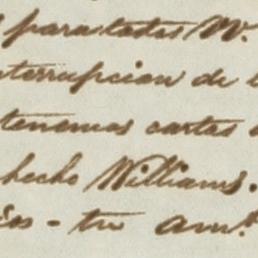 para todos W.
nterrupcion de l
tenemos cartas
hecho Williams.
ios - tu am.º